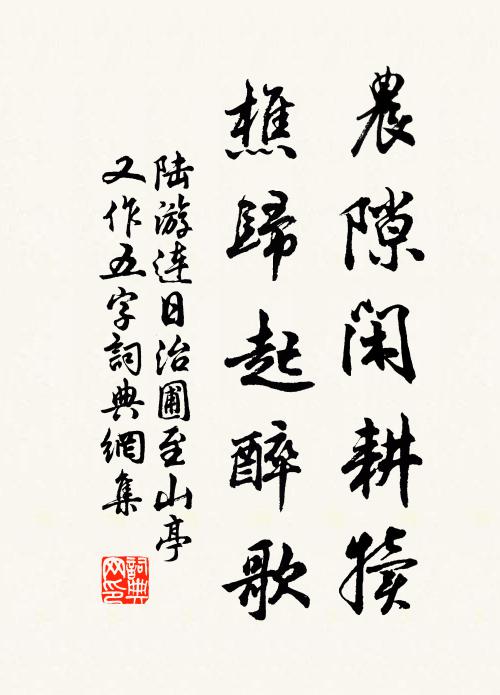 農隙閑耕犢
樵歸起醉歌
陆游連日治圃至山亭
又作五字詞典網集
詞典网印